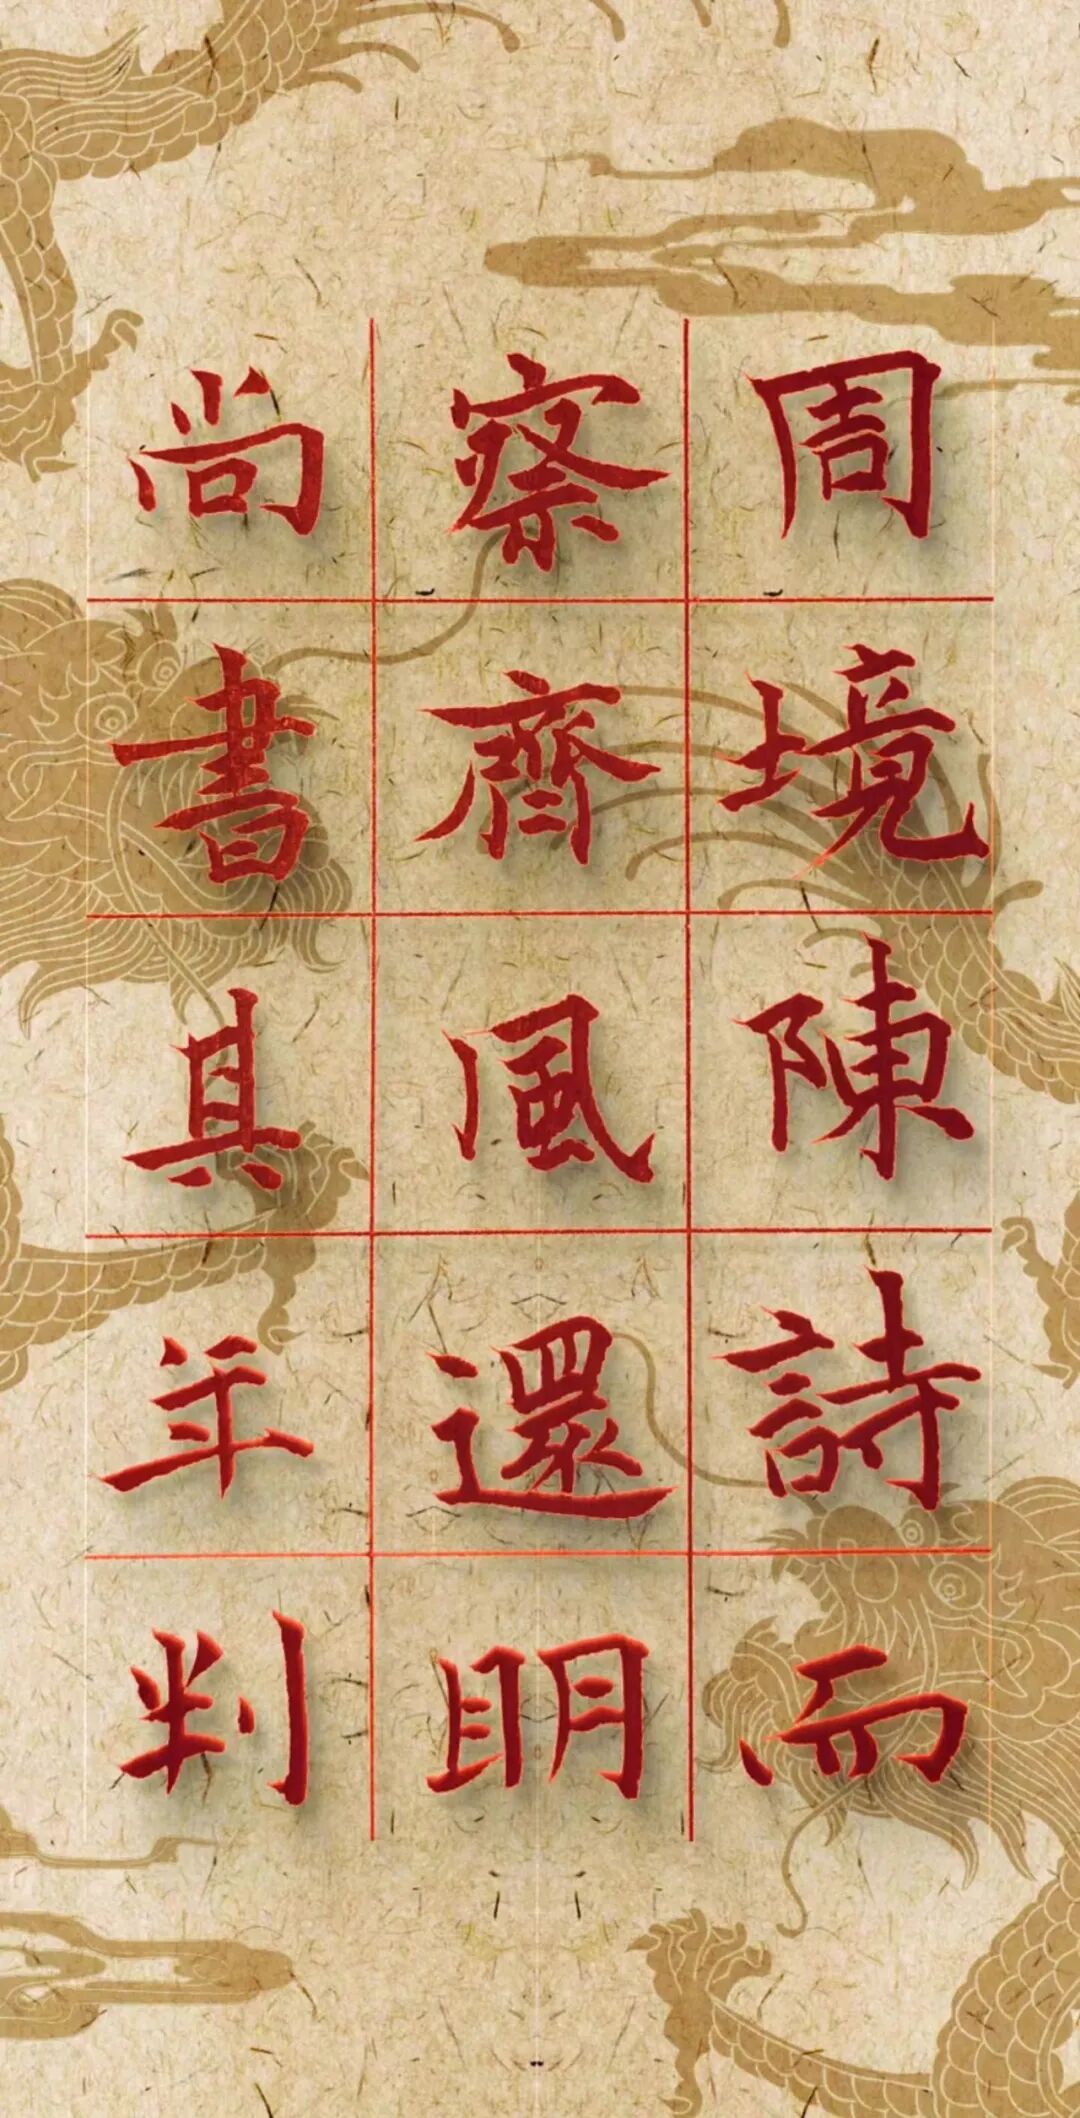 周境陳詩而
察齊風還明
尚書其年判